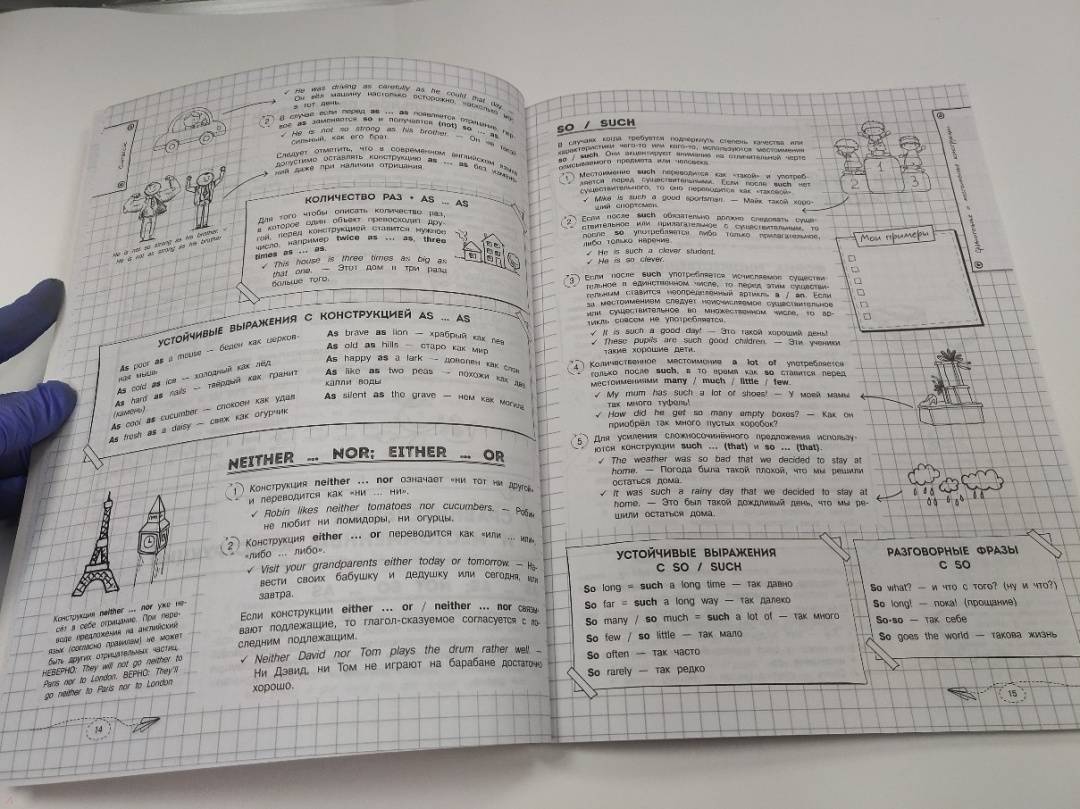 ✓ He was driving as carefully as he could that day. —
Он вёл машину настолько осторожно, насколько мог
в тот день.
2 В случае если перед as ... as появляется отрицание, пер-
вое as заменяется so и получается (not) so ... as.
✓ He is not so strong as his brother. — Он не такой
сильный, как его брат.
Следует отметить, что в современном английском языке
допустимо оставлять конструкцию as ... as без измене-
ний даже при наличии отрицания.
He is not so strong as his brother. =
He is not as strong as his brother
КОЛИЧЕСТВО РАЗ + AS ... AS
Для того чтобы описать количество раз,
в которое один объект превосходит дру-
гой, перед конструкцией ставится нужное
число, например twice as ... as, three
times as ... as.
✓ This house is three times as big as
that one. — Этот дом в три раза
больше того.
УСТОЙЧИВЫЕ ВЫРАЖЕНИЯ С КОНСТРУКЦИЕЙ AS ... AS
As poor as a mouse — беден как церков-
ная мышь
As cold as ice — холодный как лёд
As hard as nails — твёрдый как гранит
(камень)
As cool as cucumber — спокоен как удав
As fresh as a daisy — свеж как огурчик
As brave as lion — храбрый как лев
As old as hills — старо как мир
As happy as a lark — доволен как слон
As like as two peas — похожи как две
капли воды
As silent as the grave — нем как могила
NEITHER ... NOR; EITHER ... OR
1 Конструкция neither ... nor означает «ни тот ни другой»
и переводится как «ни ... ни».
✓ Robin likes neither tomatoes nor cucumbers. — Робин
не любит ни помидоры, ни огурцы.
2 Конструкция either ... or переводится как «или ... или»,
«либо ... либо».
✓ Visit your grandparents either today or tomorrow. — На-
вести своих бабушку и дедушку или сегодня, или
завтра.
Если конструкции either ... or / neither ... nor связы-
вают подлежащие, то глагол-сказуемое согласуется с по-
следним подлежащим.
✓ Neither David nor Tom plays the drum rather well. —
Ни Дэвид, ни Том не играют на барабане достаточно
хорошо.
Конструкция neither ... nor уже не-
сёт в себе отрицание. При пере-
воде предложения на английский
язык (согласно правилам) не может
быть других отрицательных частиц.
НЕВЕРНО: They will not go neither to
Paris nor to London. ВЕРНО: They'll
go neither to Paris nor to London
14
SO / SUCH
В случаях когда требуется подчеркнуть степень качества или
характеристики чего-то или кого-то, используются местоимения
so / such. Они акцентируют внимание на отличительной черте
описываемого предмета или человека.
1 Местоимение such переводится как «такой» и употреб-
ляется перед существительными. Если после such нет
существительного, то оно переводится как «таковой».
✓ Mike is such a good sportsman. — Майк такой хоро-
ший спортсмен.
2 Если после such обязательно должно следовать суще-
ствительное или прилагательное с существительным, то
после so употребляется либо только прилагательное,
либо только наречие.
✓ He is such a clever student.
✓ He is so clever.
3 Если после such употребляется исчисляемое существи-
тельное в единственном числе, то перед этим существи-
тельным ставится неопределённый артикль a / an. Если
за местоимением следует неисчисляемое существительное
или существительное во множественном числе, то ар-
тикль совсем не употребляется.
✓ It is such a good day! — Это такой хороший день!
✓ These pupils are such good children. — Эти ученики
такие хорошие дети.
4 Количественное местоимение a lot of употребляется
только после such, в то время как so ставится перед
местоимениями many / much / little / few.
✓ My mum has such a lot of shoes! — У моей мамы
так много туфель!
✓ How did he get so many empty boxes? — Как он
приобрёл так много пустых коробок?
5 Для усиления сложносочинённого предложения использу-
ются конструкции such ... (that) и so ... (that).
✓ The weather was so bad that we decided to stay at
home. — Погода была такой плохой, что мы решили
остаться дома.
✓ It was such a rainy day that we decided to stay at
home. — Это был такой дождливый день, что мы ре-
шили остаться дома.
2 1 3
Мои примеры
УСТОЙЧИВЫЕ ВЫРАЖЕНИЯ
С SO / SUCH
So long = such a long time — так давно
So far = such a long way — так далеко
So many / so much = such a lot of — так много
So few / so little — так мало
So often — так часто
So rarely — так редко
РАЗГОВОРНЫЕ ФРАЗЫ
С SO
So what? — и что с того? (ну и что?)
So long! — пока! (прощание)
So-so — так себе
So goes the world — такова жизнь
15